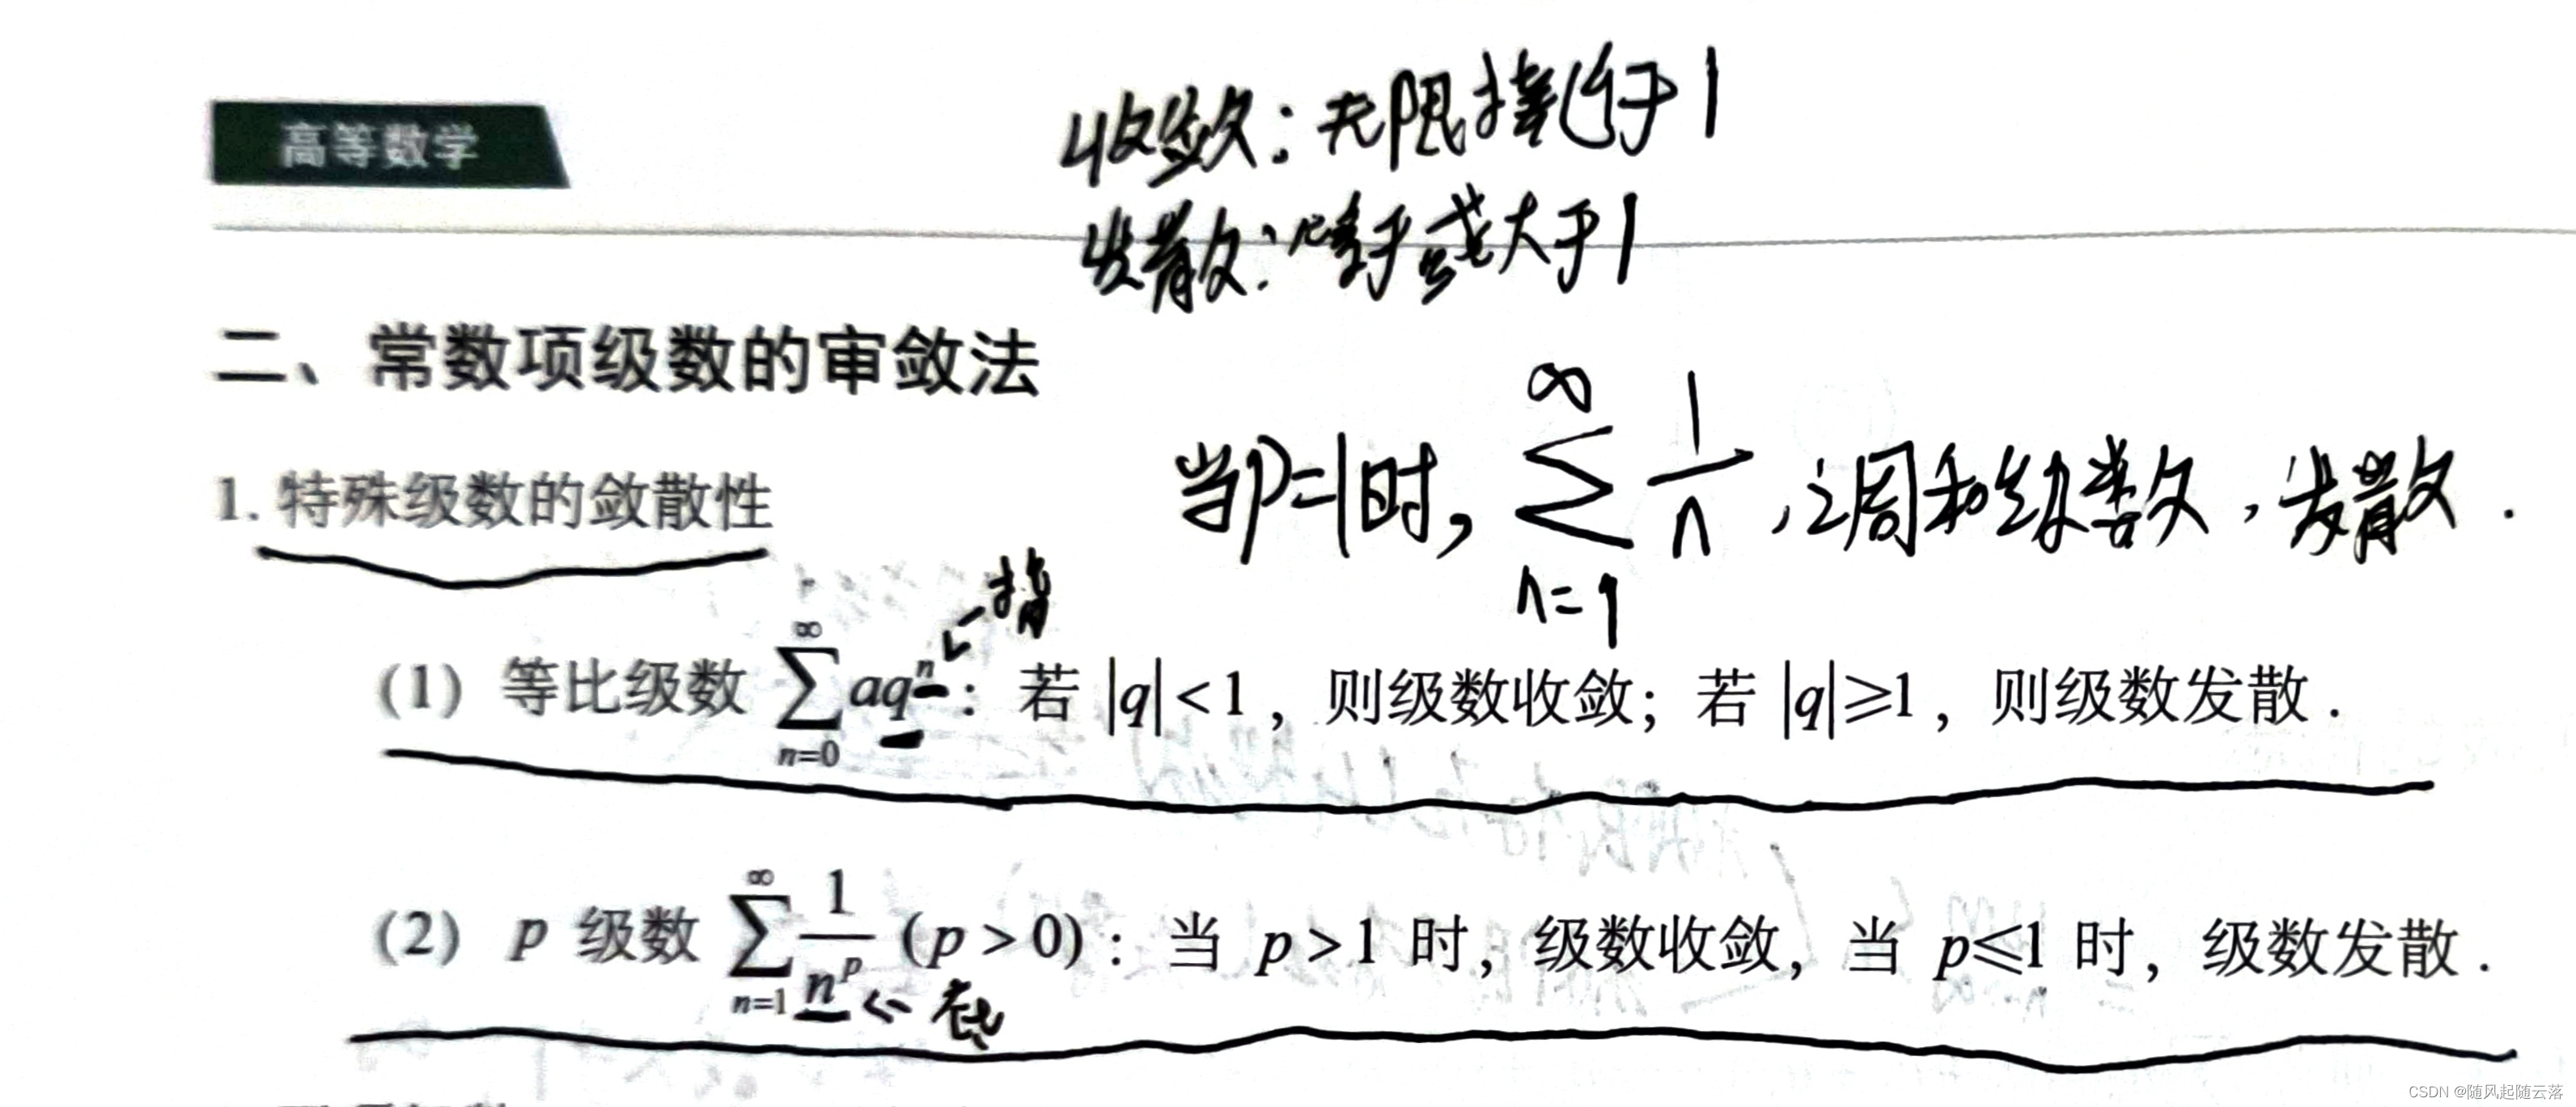 收敛：无限接近于1
高等数学
发散：等于或大于1
二、常数项级数的审敛法
当P=1时，∑_{n=1}^{∞} 1/n，之调和级数，发散．
1. 特殊级数的敛散性
指
(1) 等比级数 ∑_{n=0}^{∞} aq^n：若 |q|<1，则级数收敛；若 |q|⩾1，则级数发散．
(2) p 级数 ∑_{n=1}^{∞} 1/n^p (p>0)：当 p>1 时，级数收敛，当 p⩽1 时，级数发散．
CSDN @随风起随云落